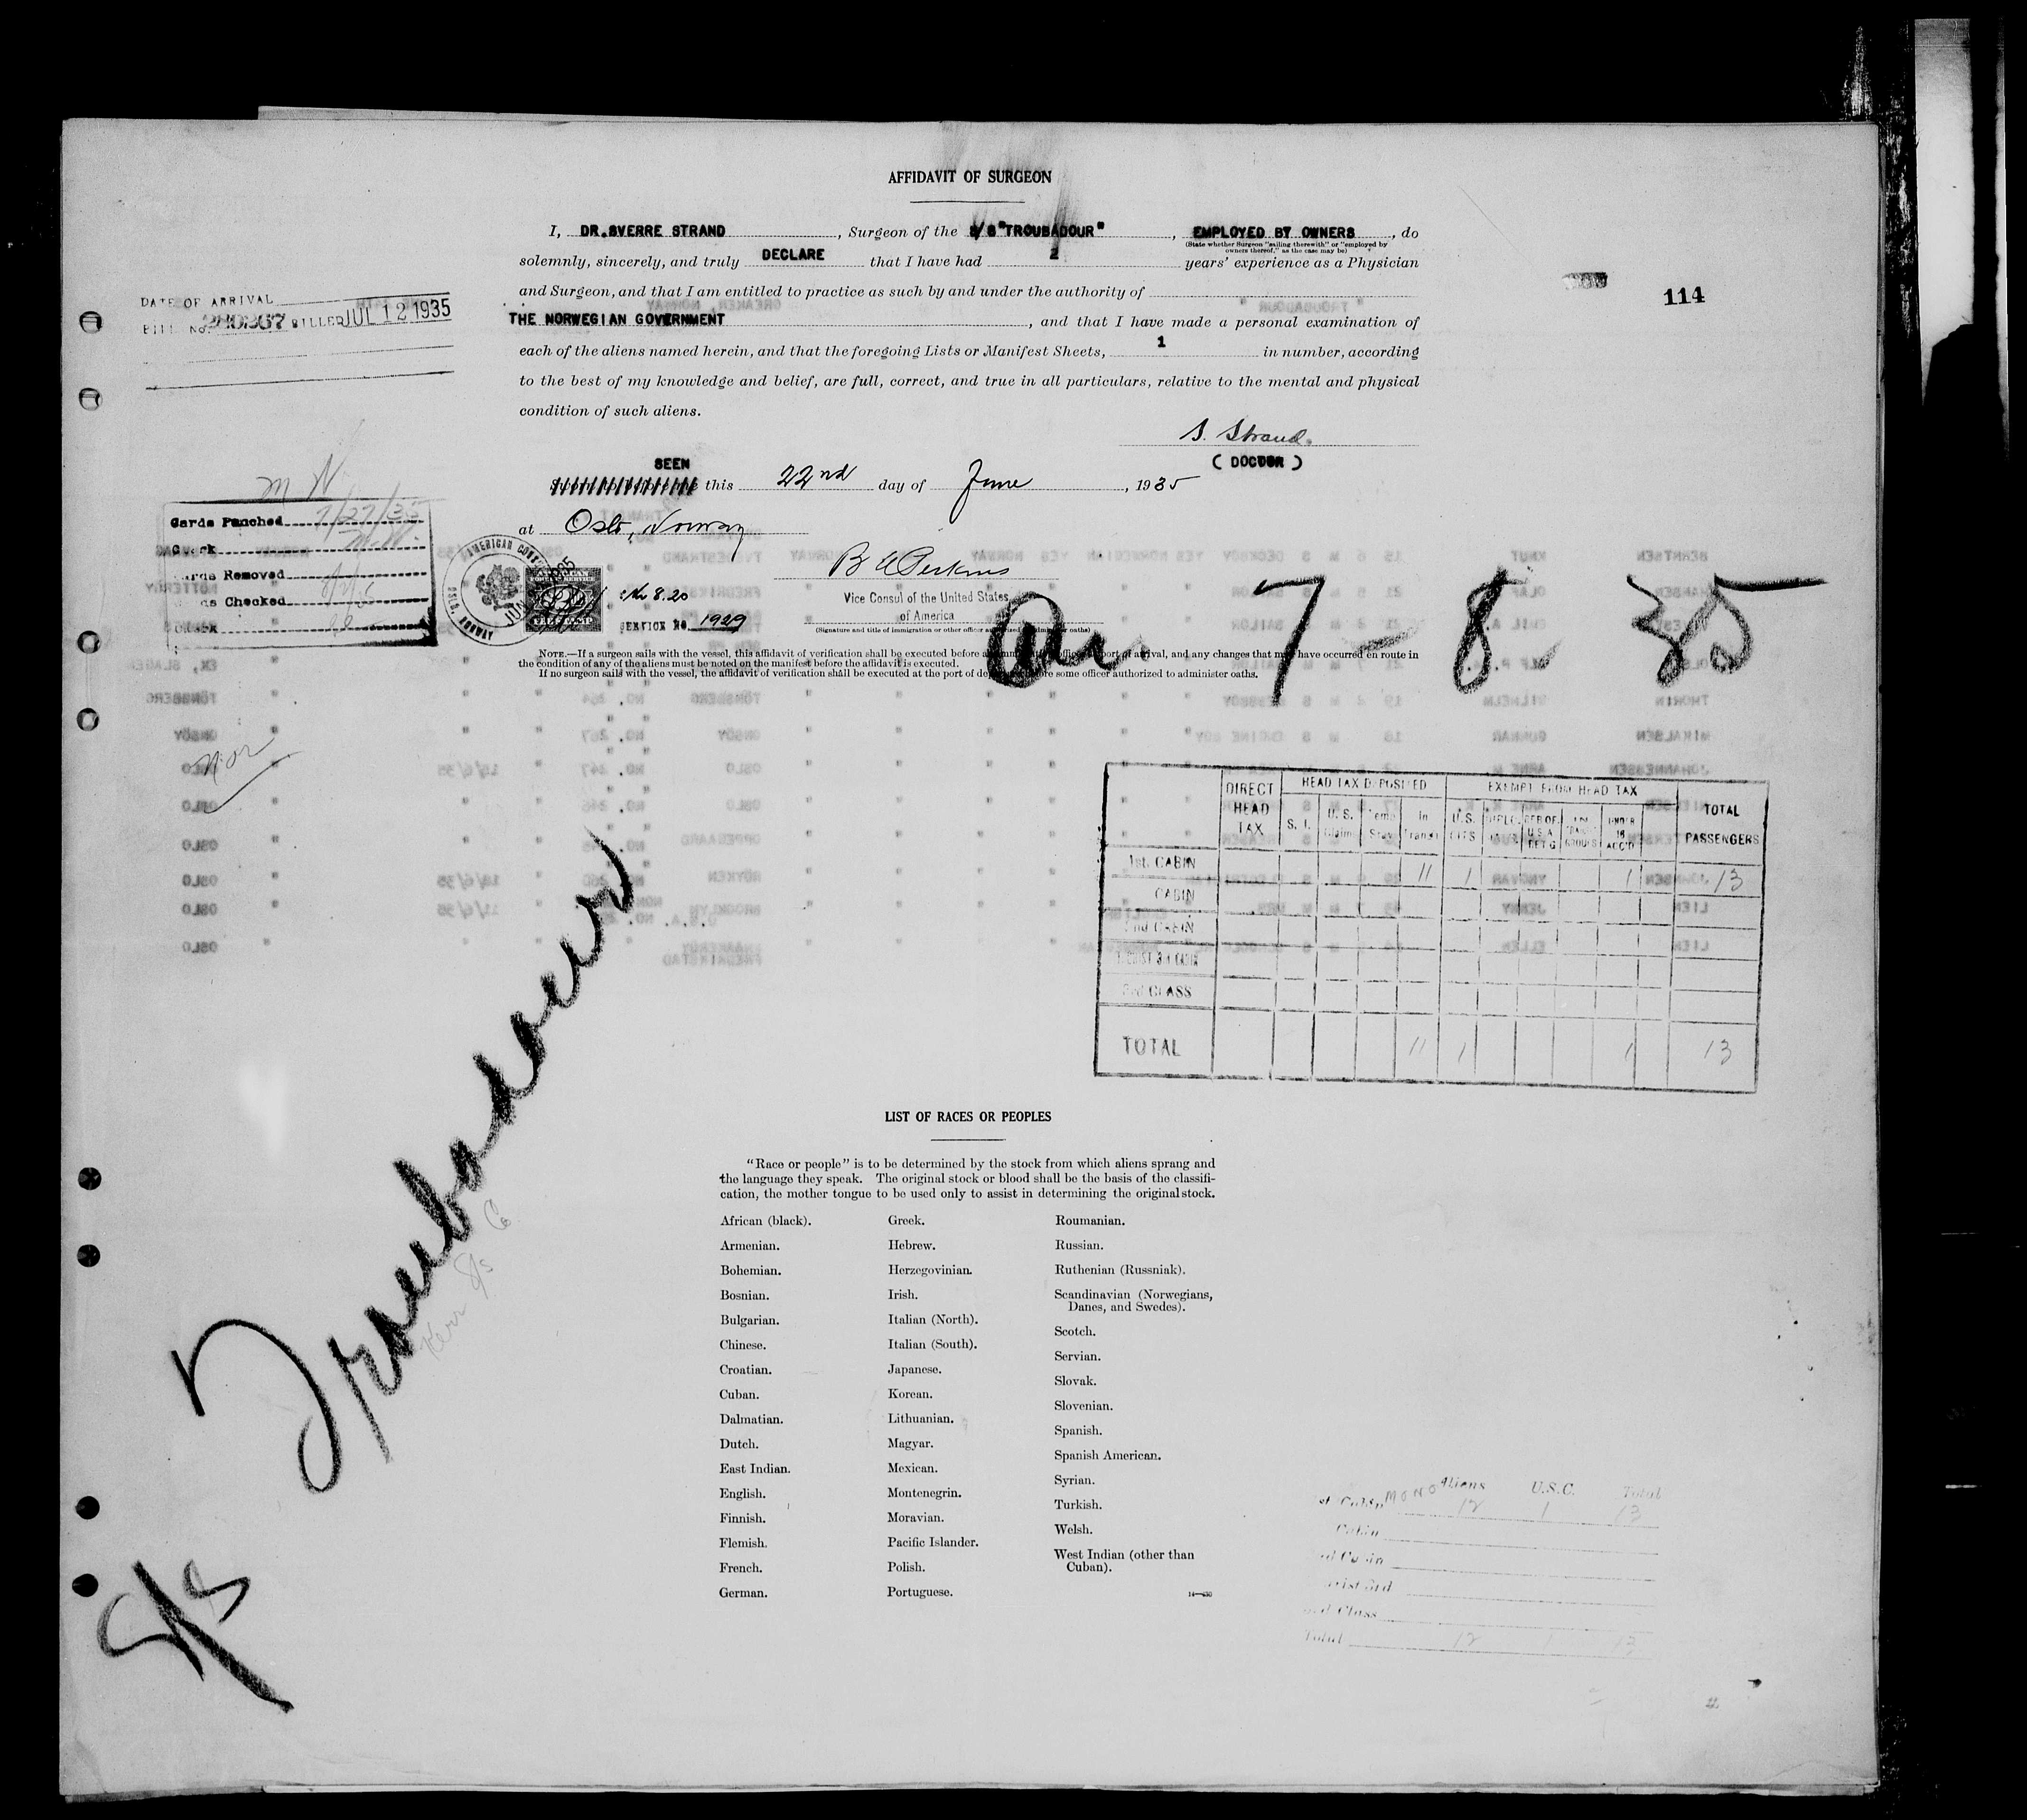 AFFIDAVIT OF SURGEON
I, DR.SVERRE STRAND, Surgeon of the S/S "TROUBADOUR", EMPLOYED BY OWNERS, do
(State whether Surgeon "sailing therewith" or "employed by
owners thereof," as the case may be)
solemnly, sincerely, and truly DECLARE that I have had 2 years' experience as a Physician
and Surgeon, and that I am entitled to practice as such by and under the authority of
THE NORWEGIAN GOVERNMENT, and that I have made a personal examination of
each of the aliens named herein, and that the foregoing Lists or Manifest Sheets, 1 in number, according
to the best of my knowledge and belief, are full, correct, and true in all particulars, relative to the mental and physical
condition of such aliens.
114
DATE OF ARRIVAL
BILL No. 280267 BILLED JUL 12 1935
S. Strand.
( DOCTOR )
SEEN
this 22nd day of June, 1935
at Oslo, Norway
M N
Cards Punched 7/27/35
Cards Removed
Checked
AMERICAN
OSLO, NORWAY
Kr 8.20
SERVICE No. 1929
Vice Consul of the United States
of America
(Signature and title of immigration or other officer authorized to administer oaths)
7-8-35
NOTE.—If a surgeon sails with the vessel, this affidavit of verification shall be executed before an immigration officer at port of arrival, and any changes that may have occurred en route in
the condition of any of the aliens must be noted on the manifest before the affidavit is executed.
If no surgeon sails with the vessel, the affidavit of verification shall be executed at the port of departure before some officer authorized to administer oaths.
Nor
DIRECT HEAD TAX HEAD TAX DEPOSITED EXEMPT FROM HEAD TAX TOTAL PASSENGERS
S. I. U. S. In Transit U.S. CITS UNDER 16 ACC'D
1st. CABIN 11 1 1 13
CABIN
2nd CABIN
3rd CLASS
TOTAL 11 1 1 13
Troubadour
Kerr S/s Co
S/S
LIST OF RACES OR PEOPLES
"Race or people" is to be determined by the stock from which aliens sprang and
the language they speak. The original stock or blood shall be the basis of the classifi-
cation, the mother tongue to be used only to assist in determining the original stock.
African (black).
Armenian.
Bohemian.
Bosnian.
Bulgarian.
Chinese.
Croatian.
Cuban.
Dalmatian.
Dutch.
East Indian.
English.
Finnish.
Flemish.
French.
German.
Greek.
Hebrew.
Herzegovinian.
Irish.
Italian (North).
Italian (South).
Japanese.
Korean.
Lithuanian.
Magyar.
Mexican.
Montenegrin.
Moravian.
Pacific Islander.
Polish.
Portuguese.
Roumanian.
Russian.
Ruthenian (Russniak).
Scandinavian (Norwegians,
Danes, and Swedes).
Scotch.
Servian.
Slovak.
Slovenian.
Spanish.
Spanish American.
Syrian.
Turkish.
Welsh.
West Indian (other than
Cuban).
Aliens U.S.C. Total
12 1 13
Cabin
Class
Total 12 1 13